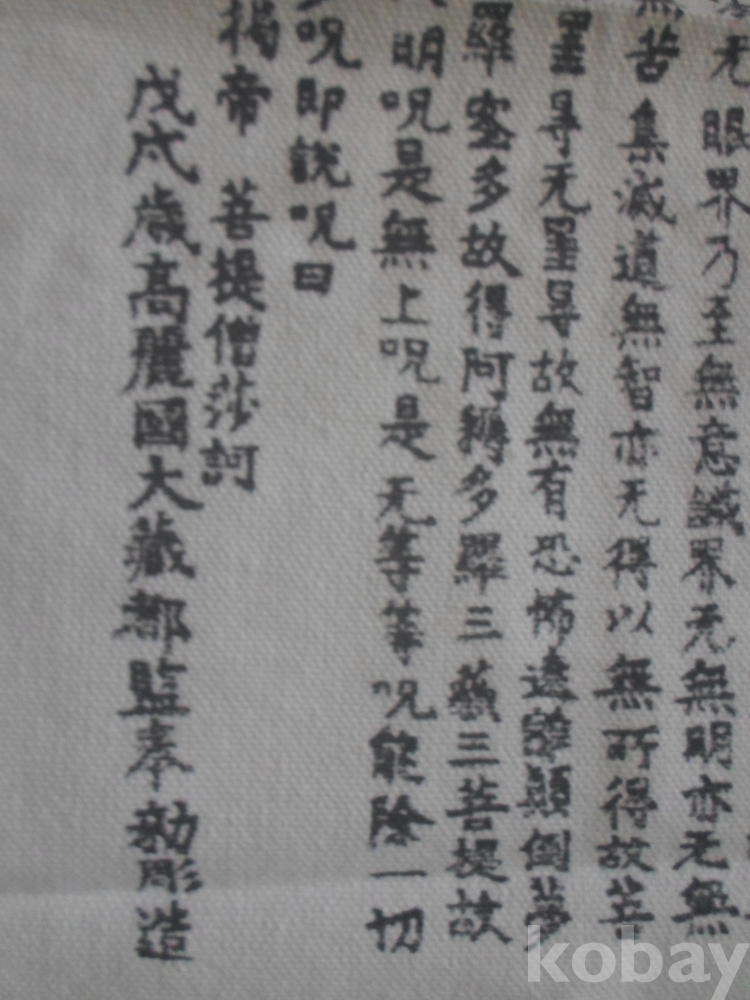 无眼界乃至無意識界无無明亦无無
無苦集滅道無智亦无得以無所得故菩
罣㝵无罣㝵故無有恐怖遠離顛倒夢
羅蜜多故得阿耨多羅三藐三菩提故
明呪是無上呪是无等等呪能除一切
呪即說呪曰
揭帝 菩提僧莎訶
戊戌歲高麗國大藏都監奉勑彫造
kobay